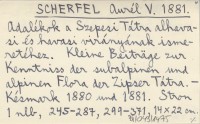 SCHERFEL Aurél V. 1881.
Adalékok a Szepesi Tátra alhava-
si és havasi virányának isme-
retéhez. Kleine Beiträge zur
Kenntniss der subalpinen und
alpinen Flora der Zipser Tátra.-
Késmark 1880 und 1881. Stron
1 nlb, 245-287, 299-371, 14x22 cm.